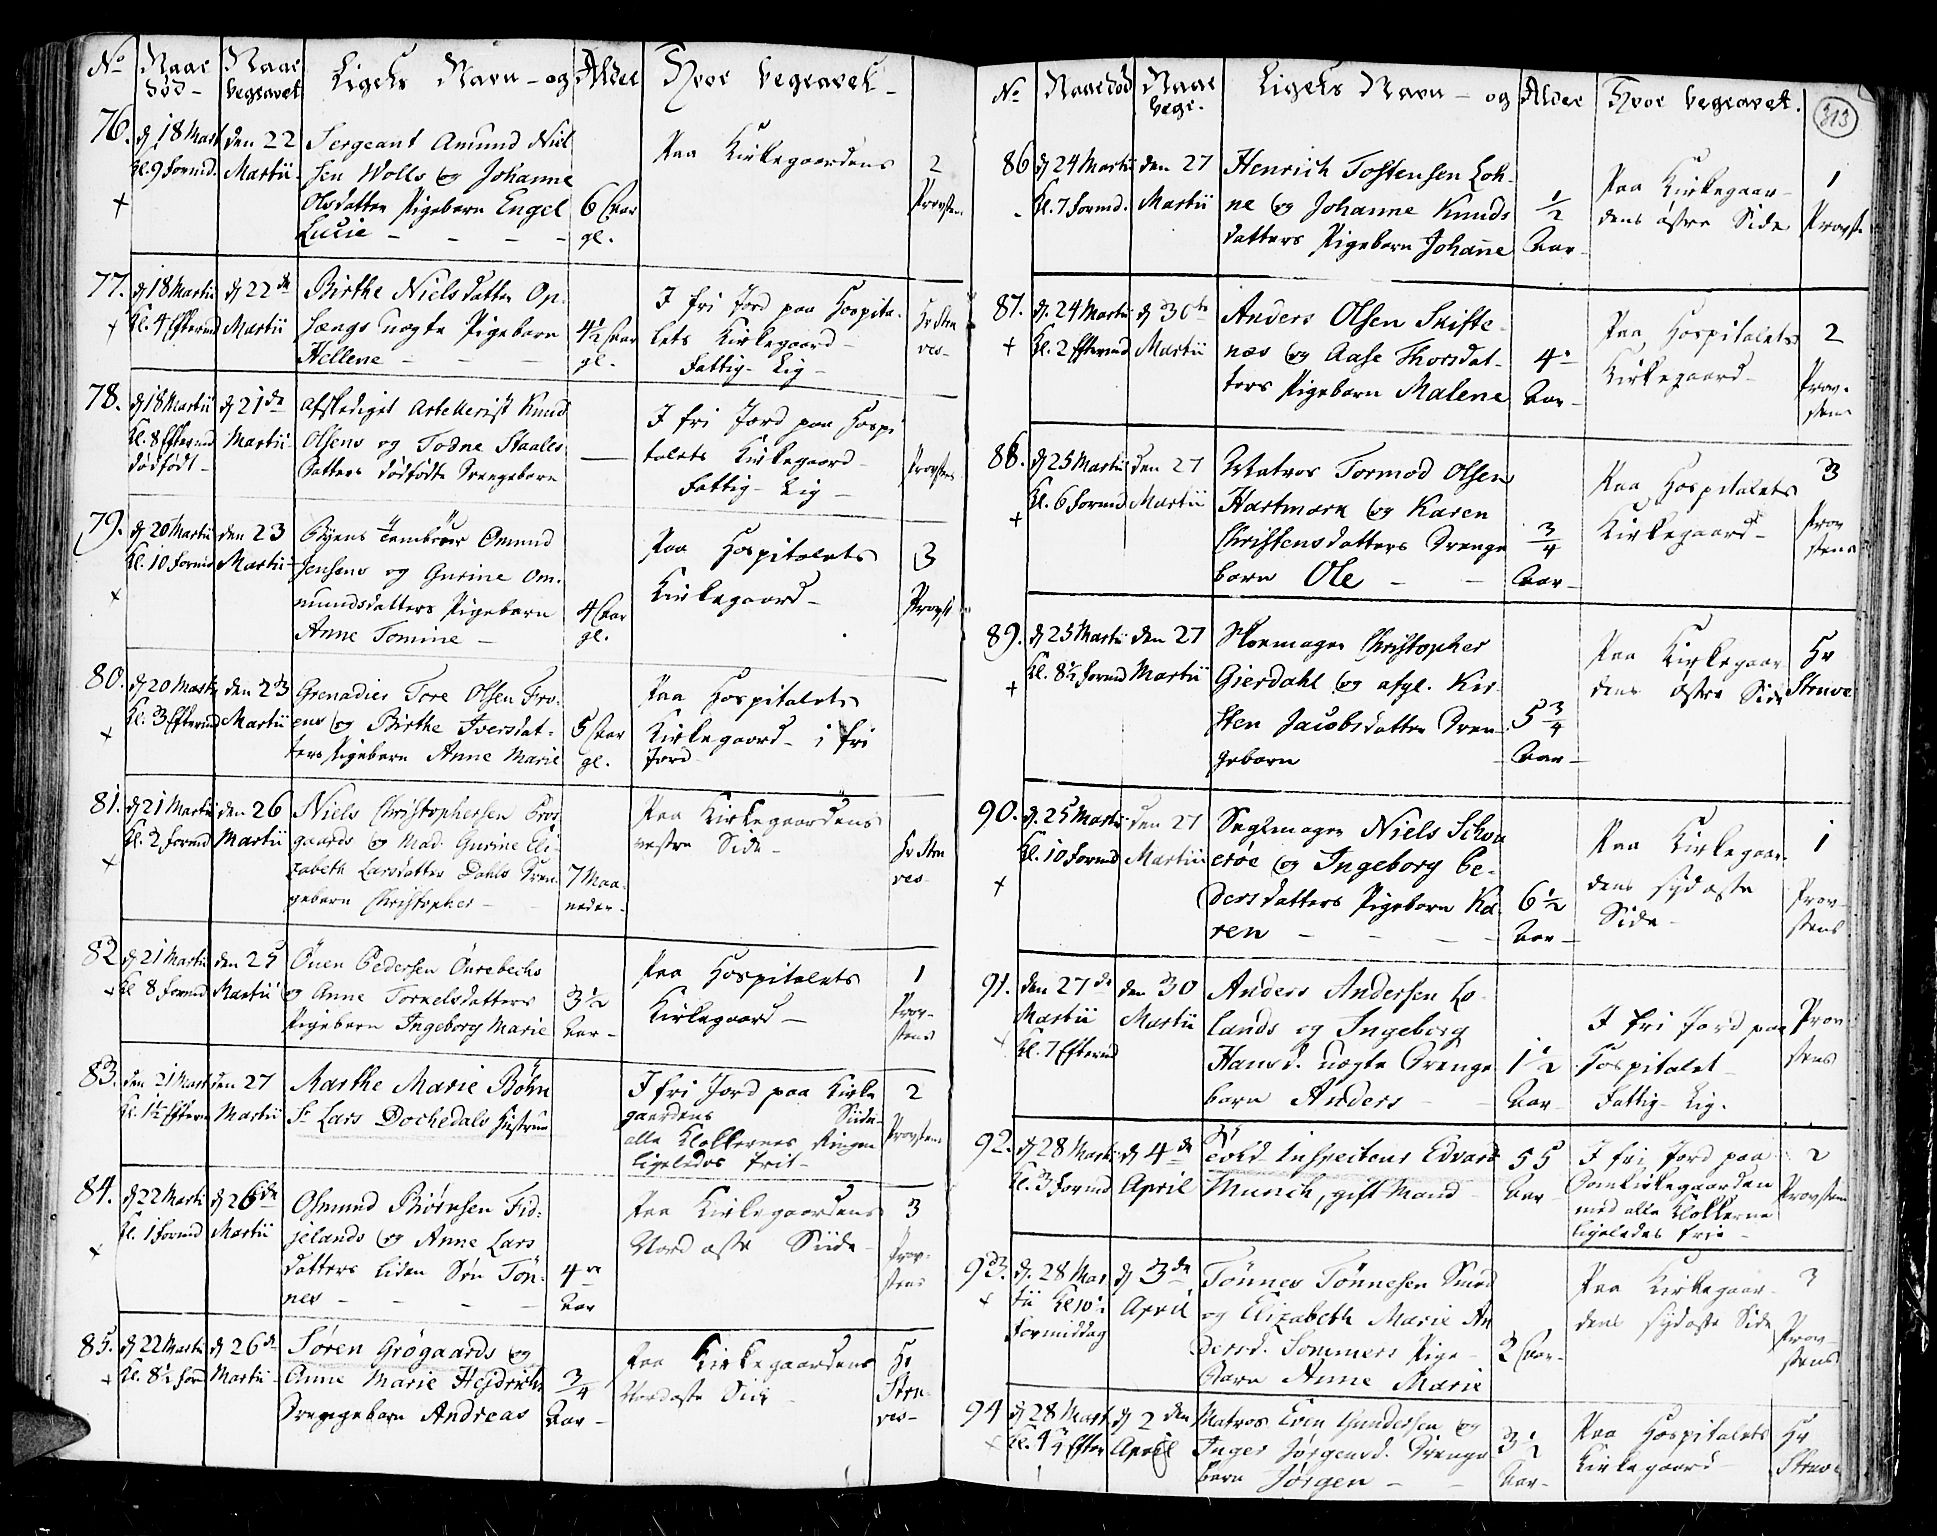 No
Naar
død -
Naar
begravet
Ligets Navn - og Alder
Hvor begravet -
76. d 18 Mart
Kl. 9 Formd.
den 22
Martii -
Sergeant Amund Niel
sen Wolls og Johanne
Olsdatter Pigebarn Engel
Lucie - - - -
6 Aar
gl.
Paa Kirkegaardens
2
Provsten
77. d 18 Martii
Kl. 4 Efterm
d 22de
Martii
Birthe Nielsdatter Op-
sængs uægte Pigebarn
Hellene - - -
4½ Aar
gl.
I fri Jord paa Hospita-
lets Kirkegaard -
Fattig- Lig -
Hr Stru
ves -
78. d 18 Martii
Kl. 8 Efterm
dødfødt -
d 21de
Martii -
afskediget Artellerist Knud
Olsens og Todne Staales
Datters dødfødte Drengebarn
I fri Jord paa Hospi
talets Kirkegaard -
Fattig- Lig -
Provstens
79. d 20 Martii
Kl. 10 Formd
den 23
Martii -
Byens Tambour Omund
Jensens og Gurine Om-
mundsdatters Pigebarn
Anne Tomine -
4 Aar
gl.
Paa Hospitalets
Kirkegaard -
3
Provst
80. d 20 Martii
Kl. 3 Efterm
den 23
Martii
Grenadier Tore Olsen Fro-
ens og Birthe Iversdat-
ters Pigebarn Anne Marie
5 Aar
gl.
Paa Hospitalets
Kirkegaard - i fri
Jord
81. d 21 Martii
Kl. 2 Formd
den 26
Martii
Niels Christophersen
gaards og Mad. Gurine Eli-
zabeth Larsdatter Dahls Dren-
gebarn Christopher -
7 Maa-
neder -
Paa Kirkegaardens
vestre Side -
Hr Stru
ves -
82 d 21 Martii
Kl 8 Formd
den 25
Martii
Ouen Pedersen Ourebechs
og Anne Torkelsdatters
Pigebarn Ingeborg Marie
3½
Aar -
Paa Hospitalets
Kirkegaard -
1
Prov-
stens
83. den 21 Mart
Kl. 1½ Efterm
den 27
Martii
Marthe Marie Böhn
Sr Lars Dochedals Hustrue
I fri Jord paa Kirke
gaardens Side -
alle Klokkernes Ringen
ligeledes frit -
2
Provstens
84. d 22 Martii
Kl. 1 Formd
d 26de
Martii
Osmund Biørnsen Fid-
jelands og Anne Lars
datters liden Søn Tön-
nes - - - -
4re
Aar
Paa Kirkegaardens
Nord øste Siide -
3
Prov-
stens
85. d 22 Martii
Kl. 8½ For
d 26de
Martii -
Søren Grögaards og
Anne Marie Hejdrichs
Drengebarn Andreas
¾
Aar -
Paa Kirkegaardens
Nordøste Side -
Hr
Stru-
ves -
No
Naar død
Naar
begr.
Ligets Navn - og Alder
Hvor begravet.
313
86 d 24 Martii
Kl. 7 Formd.
den 27
Martii
Henrich Tostensen Loh-
ne og Johanne Knuds
datters Pigebarn Johane
½
Aar -
Paa Kirkegaar-
dens østre Side
1
Provste
87. d. 24 Martii
Kl. 2 Efterm
d 30te
Martii
Anders Olsen Skifte-
næs og Aase Thorsdat-
ters Pigebarn Malene
4
Aar -
Paa Hospitalets
Kirkegaard -
2
Prov-
stens
88. d 25 Martii
Kl. 6 Formd
den 27
Martii
Matros Tormod Olsen
Hartmark og Karen
Christensdatters Drenge
barn Ole - -
¾
Aar -
Paa Hospitalets
Kirkegaard -
3
Prov
stens
89. d 25 Martii
Kl. 8½ Formd
den 27
Martii
Skomager Christopher
Gierdahl og afgl. Kir-
sten Jacobsdatter Dren-
gebarn
5¾
Aar -
Paa Kirkegaar
dens østre Side
Hr
Struve
90. d. 25 Martii
Kl. 10 Formd
den 27
Martii
Seglmager Niels Schou
erøe og Ingeborg Pe-
dersdatters Pigebarn Ka-
ren - - - -
6½
Aar -
Paa Kirkegaar-
dens sydøste
Side -
1
Prov-
stens
91. den 27de
Martii
Kl. 7 Efterm
den 30
Martii
Anders Andersen Lo-
lands og Ingeborg
Hansd. uægte Drenge
barn Anders -
1½
Aar -
I fri Jord paa
Hospitalet -
Fattig- Lig.
Prov
stens
92. d 28 Martii
Kl. 3 Formd
d 4de
April
Told Inspecteur Edvard
Munch, gift Mand -
55
Aar
I fri Jord paa
Domkirkegaarden
med alle Klokkerne
ligeledes frie -
2
Provstens
93. d. 28 Mar
tii Kl 10½
Formiddag
d 3de
April
Tönnes Tönnesen Smed
og Elizabeth Marie An
dersd. Sommers Pige-
Barn Anne Marie
2 Aar -
Paa Kirkegaar-
dens sydøste Side
3
Prov-
stens
94 d 28 Mart
Kl. 4 Efter
d 2den
April
Matros Even Gundersen og
Inger Jørgensd. Drenge
barn Jørgen - -
3½
Aar -
Paa Hospitalets
Kirkegaard -
Hr
Struve